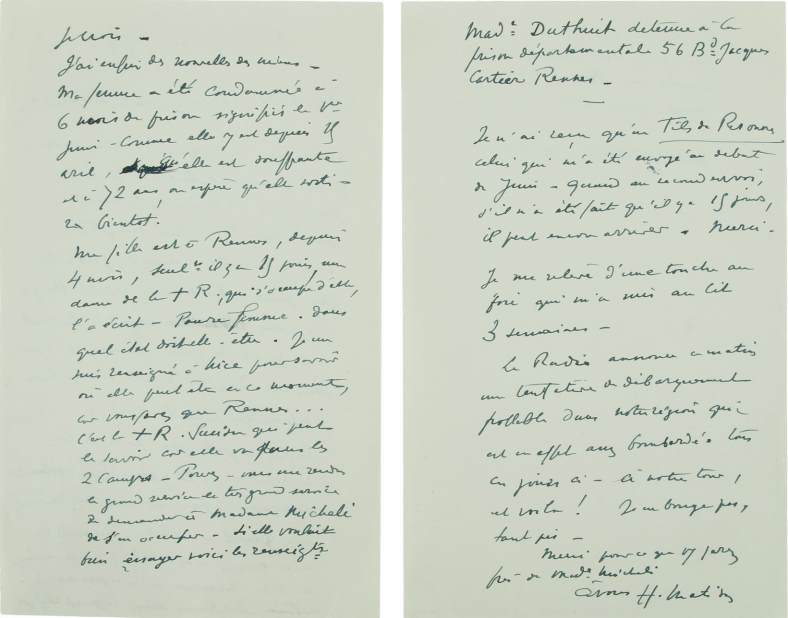 J'ai enfin des nouvelles des miens –
Ma femme a été condamnée à
6 mois de prison signifiés le 1er
Juin – Comme elle y est depuis 15
avril, qu'elle est souffrante
et à 72 ans, on espère qu'elle sorti-
ra bientôt.
Ma fille est à Rennes, depuis
4 mois, seult il y a 15 jours une
dame de la + R., qui s'occupe d'elle,
l'a écrit – Pauvre femme. Dans
quel état doit-elle être. Je me
suis renseigné à Nice pour savoir
où elle peut être en ce moment,
car vous savez que Rennes...
C'est la + R. Suisse qui peut
le savoir car elle va dans les
2 Camps – Pouvez-vous me rendre
le grand service le très grand service
de demander à Madame Micheli
de s'en occuper – Si elle voulait
bien essayer voici les renseigts
Made Duthuit detenue à la
prison départementale 56 Bd Jacques
Cartier Rennes –
Je n'ai reçu qu'un Fils de Personne
celui qui m'a été envoyé au début
de Juin – Quand au second envoi,
s'il n'a été fait qu'il y a 15 jours,
il peut encore arriver. Merci –
Je me relève d'une touche au
foie qui m'a mis au lit
3 semaines –
La Radio annonce ce matin
une tentative de débarquement
possible dans notre région qui
est en effet assez bombardée tous
ces jours ci – à notre tour,
et voilà! Je ne bouge pas,
tant pis –
Merci pour ce que vs ferez
près de Made Micheli
à vous H. Matisse